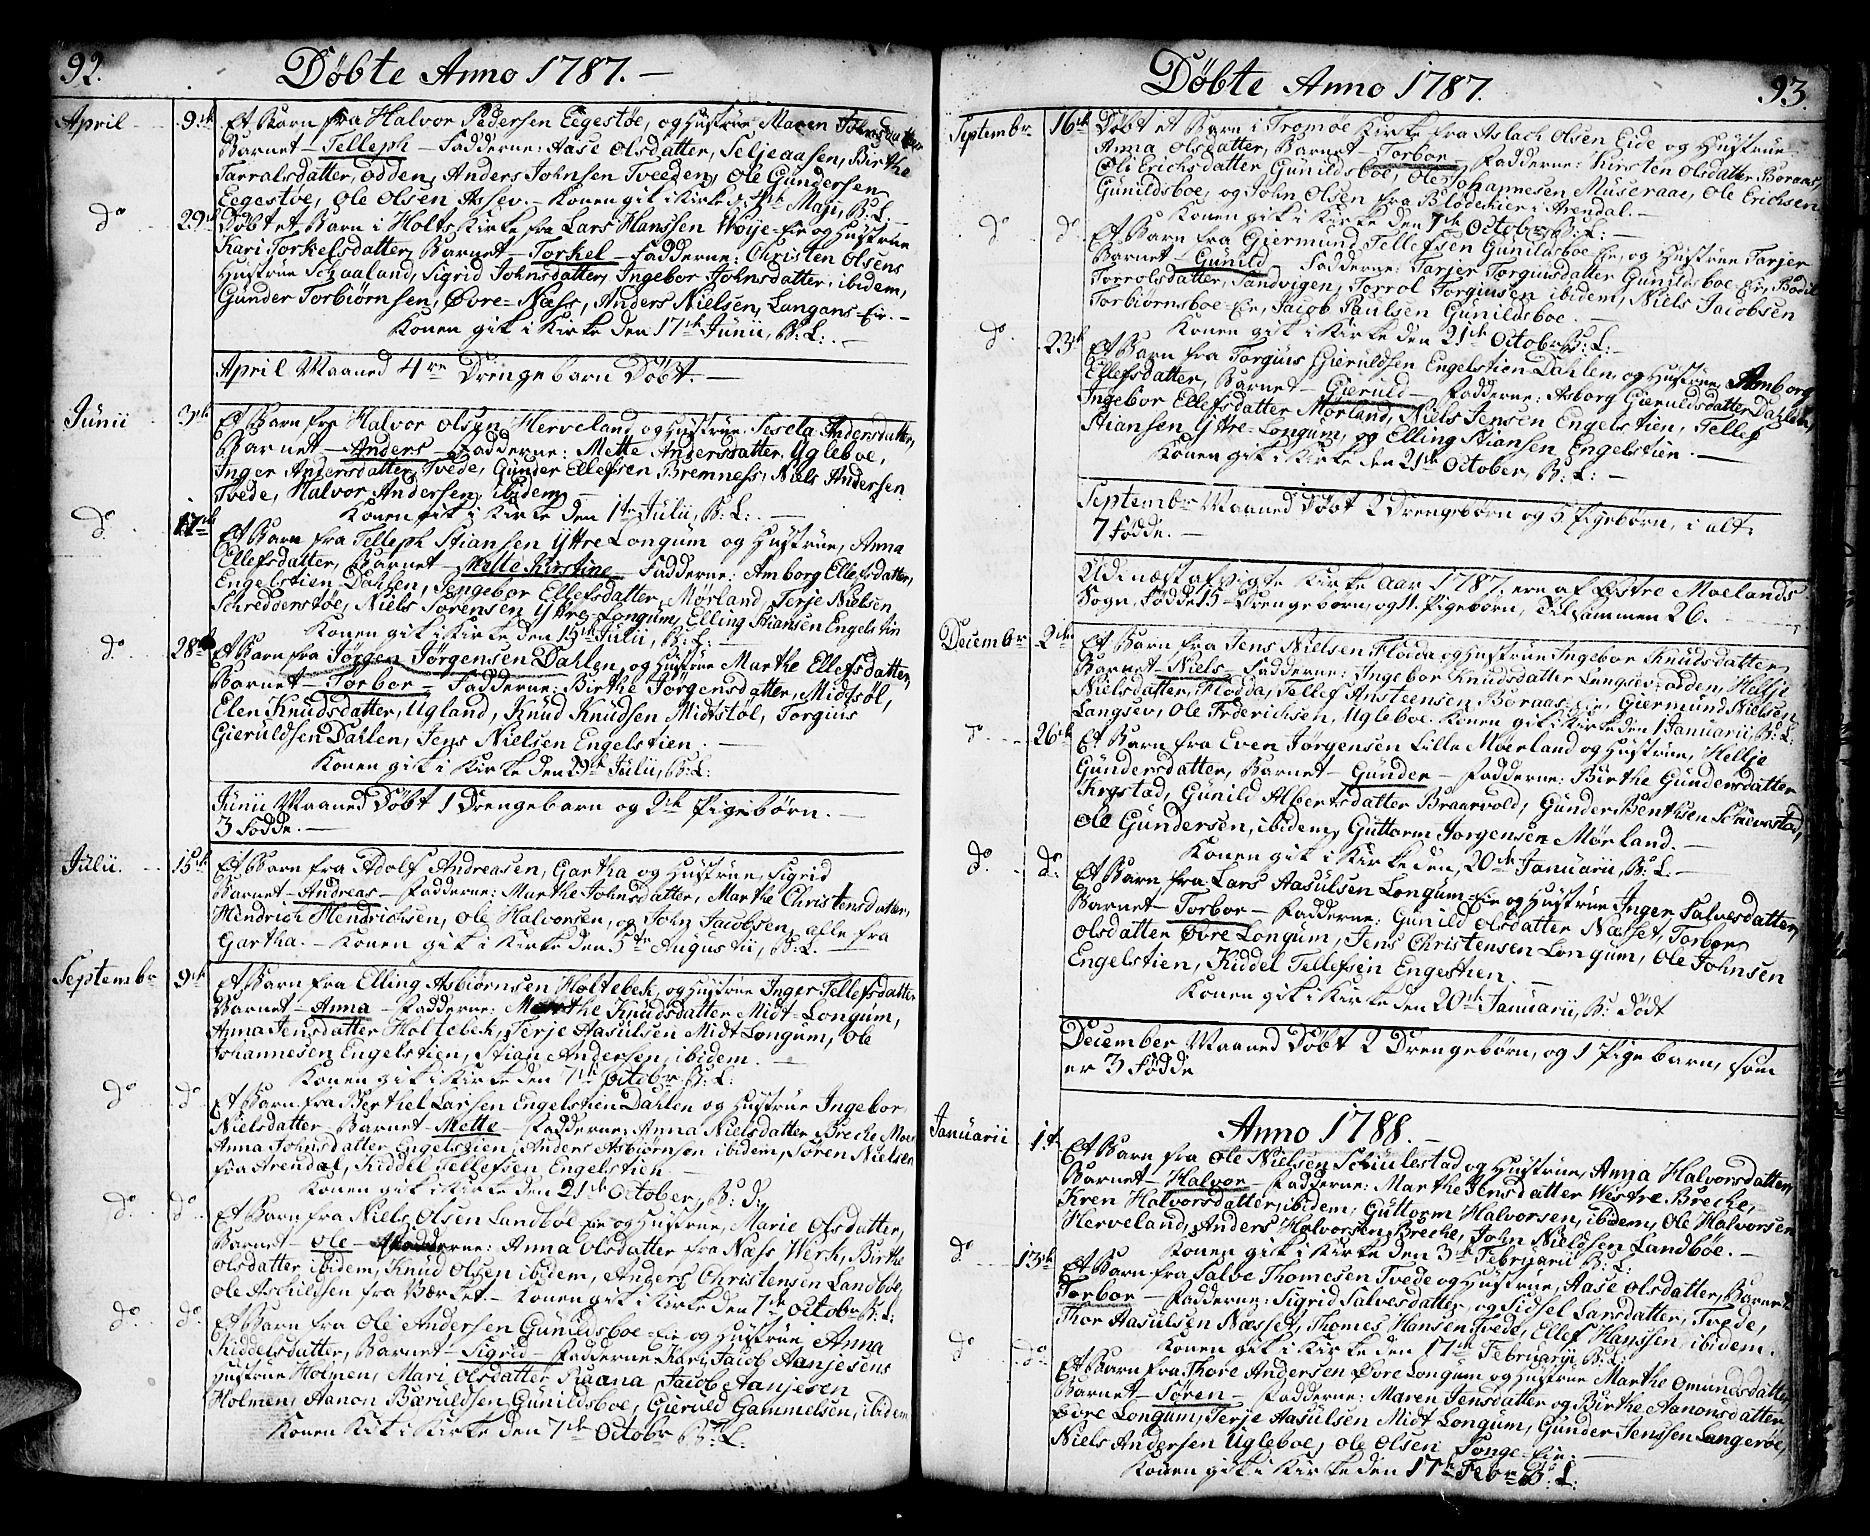 92.
Døbte Anno 1787. —
April 9de Et Barn fra Halvor Pedersen Eegestøe, og Hustrue Maren Johnsdatter
Barnet — Telleph — Fadderne: Aase Olsdatter, Seljeaasen, Birthe
Tarralsdatter, Odden, Anders Johnsen Tveeden, Ole Gundersen
Eegestøe, Ole Olsen Assev. — Konen gik i Kirke d: Maji, B: L: —
do 29de Døbt et Barn i Holts Kirke fra Lars Hanssen Woije-Eie og Hustrue
Kari Torkelsdatter, Barnet — Torkel — Fadderne: Christen Olsens
Hustrue Scaaland, Sigrid Johnsdatter, Ingebor Johnsdatter, ibidem,
Gunder Torbiørnsen, Øvre-Næss, Anders Nielsen, Langans-Eie. —
Konen gik i Kirke den 17de Junii, B: L: . —
April Maaned 4re Drengebarn Døbt. —
Junii 3de Et Barn fra Halvor Olsen Herveland og Hustrue, Sesela Andersdatter,
Barnet — Anders — Fadderne: Mette Andersdatter, Ugleboe,
Inger Andersdatter, Tvede, Gunder Ellefsen Bremness, Niels Andersen
Tvede, Halvor Andersen, ibidem —
Konen gik i Kirke den 1te Julii, B: L: . —
do 17de Et Barn fra Telleph Stiansen Yttre Longum og Hustrue, Anna
Ellefsdatter, Barnet — Mette Kirstine — Fadderne: Amborg Ellefsdatter,
Engelstien-Dahlen, Ingebor Ellefsdatter, Mørland, Terje Nielsen
Schreddenstøe, Niels Sørensen Yttre-Longum, Elling Stiansen Engelstien
Konen gik i Kirke den 15de Julii, B: L: —
do 28de Et Barn fra Jørgen Jørgensen Dahlen, og Hustrue Marthe Ellefsdatter,
Barnet — Torbor — Fadderne: Birthe Jørgensdatter, Midtsøl,
Elen Knudsdatter, Ugland, Knud Knudsen Midtstøl, Torgius
Gieruldsen Dahlen, Jens Nielsen Engelstien . —
Konen gik i Kirke den 29de Julii, B: L:
Junii Maaned Døbt 1 Drengebarn og 2de Pigebørn. —
3 Fødde. —
Julii. 15de Et Barn fra Adolf Andreasen, Gartha og Hustrue, Sigrid
Barnet — Andreas — Fadderne: Marthe Johnsdatter, Marthe Christensdatter,
Hindrich Hendrichsen, Ole Halvorsen, og John Jacobsen, alle fra
Gartha. — Konen gik i Kirke den 5te Augustii, B: L.
Septembr 9de Et Barn fra Elling Asbiørnsen Holtebek, og Hustrue Inger Tellefsdatter
Barnet — Anna — Fadderne: Marthe Knudsdatter Midt-Longum,
Anna Jensdatter Holtebek, Terje Aasulsen Midt Longum, Ole
Johannesen Engelstien, Stian Andersen, ibidem. —
Konen gik i Kirke den 7de Octobr B: L:
do do Et Barn fra Berthel Larsen Engelstien Dahlen og Hustrue Ingebor
Nielsdatter Barnet — Mette — Fadderne: Anna Nielsdatter Brecke
Anna Johnsdatter Engelstien, Anders Asbiørnsen ibidem, Søren Nielsen
fra Arendal, Kiddel Tellefsen Engelstien —
Konen gik i Kirke den 21de October, B: d:
do. do. Et Barn fra Niels Olsen Landbøe-Eie og Hustrue, Marie Olsdatter,
Barnet — Ole — Fadderne: Anna Olsdatter fra Næss Werk, Birthe
Olsdatter ibidem, Knud Olsen ibidem, Anders Christensen Landbøe,
Ole Aschildsen fra Værket — Konen gik i Kirke den 7de Octobr B: L:
do. do. Et Barn fra Ole Andersen Gunildsboe-Eie og Hustrue, Anna
Kiddelsdatter, Barnet — Sigrid — Fadderne Kari, Jacob Aanjesens
Hustrue Holmen, Mari Olsdatter Raana, Jacob Aanjesen
Holmen, Aanon Bæruldsen Gunildsboe, Gieruld Gammelsen, ibidem
Konen Kik i Kirke den 7de Octobr B: L:
Døbte Anno 1787.
93.
Septembr 16de Døbt et Barn i Tromøe Kirke fra Aslach Olsen Eide og Hustrue
Anna Olsdatter, Barnet — Torbor — Fadderne: Kirsten Olsdatter Boraas,
Oli Erichsdatter Gunildsboe, Ole Johannesen Museraae, Ole Erichsen
Gunildsboe, og John Olsen fra Blødekier i Arendal. —
Konen gik i Kirke den 7de October B: L: —
do do. Et Barn fra Giermund Tellefsen Gunildsboe-Eie, og Hustrue Tarjer
Barnet — Gunild — Fadderne: Tarjer Torgiusdatter Gunildsboe-Eie, Bodil
Torrolsdatter, Sandvigen, Torrol Torgiusen ibidem, Niels Jacobsen
Torbiørnsboe-Eie, Jacob Paulsen Gunildsboe. —
Konen gik i Kirke den 21de Octobr B: L: —
do. 23de Et Barn fra Torgius Gieruldsen Engelstien-Dahlen, og Hustrue, Amborg
Ellefsdatter, Barnet — Gieruld — Fadderne: Asborg Gieruldsdatter Dahlen,
Ingebor Ellefsdatter Mørland, Niels Jensen Engelstien, Tellef
Stiansen Yttre-Longum, og Elling Stiansen Engelstien. —
Konen gik i Kirke den 21de October, B: L: —
Septembr Maaned Døbt 2 Drengebørn og 5 Pigebørn, i alt:
7 Fødde. —
Udi næst afvigte Kirke Aar 1787. ere af Østre Moelands
Sogn, Fødde 15 — Drengebørn, og 11. Pigebørn, Tilsammen 26. —
Decembr 2den Et Barn fra Jens Nielsen Flodda og Hustrue Ingebor Knudsdatter
Barnet — Niels — Fadderne: Ingebor Knudsdatter Langsev-odden, Hælje
Nielsdatter, Flodda, Tellef Ansteensen Boraas-Eie, Giermund Nielsen
Langsev, Ole Frderichsen, Ugleboe. Konen gik i Kirke den 1 Januarii B: L:
do 26de Et Barn fra Even Jørgensen Lille Møerland og Hustrue, Hellje
Gundersdatter, Barnet — Gunder — Fadderne: Birthe Gundersdatter
Krystad, Gunild Albertsdatter Braarvold, Gunder Benthsen
Ole Gundersen, ibidem, Guttorm Jorgensen Mørland. —
Konen gik i Kirke den, 20de Januarii, B: L: —
do. do. Et Barn fra Lars Aasulsen Longum-Eie og Hustrue Inger Salvesdatter,
Barnet — Torbor — Fadderne: Gunild Olsdatter Næsset, Torbor
Olsdatter Øvre Longum, Jens Christensen Longum, Ole Johnsen
Engelstien, Kiddel Tellefsen Engestien —
Konen gik i Kirke den 20de Januarii, B: Dødt
December Maaned Døbt 2 Drengebørn, og 1 Pigebarn, som
er 3 Fødde
Anno 1788. —
Januarii 1te Et Barn fra Ole Nielsen Schiulestad og Hustrue, Anna Halvorsdatter,
Barnet — Halvor — Fadderne: Marthe Jensdatter Westre Brecke,
Kren Halvorsdatter, ibidem, Guttorm Halvorsen, ibidem, Ole Halvorsen
Herveland, Anders Halvorsen Brecke, John Nieldsen Landbøe. —
Konen gik i Kirke den 3de Februarii B: L:
do 13de Et Barn fra Salve Thomesen Tvede og Hustrue, Aase Olsdatter, Barnet
Torbor — Fadderne: Sigrid Salvesdatter, og Sidsel Larsdatter, Tvede,
Thor Aasulsen Næsset, Thomes Hansen Tvede, Ellef Hanssen, ibidem.
Konen gik i Kirke den 17de Februarii B: L:
do do Et Barn fra Thore Andersen Øvre Longum og Hustrue Marthe Omundsdatter,
Barnet — Søren — Fadderne: Maren Jensdatter og Birthe Aanonsdatter
Øvre Longum, Terje Aasulsen Midt Longum, Gunder Jenssen Langerøe,
Niels Andersen Ugleboe, Ole Olsen Songe-Eie. —
Konen gik i Kirke den 17de Febr. B: L: